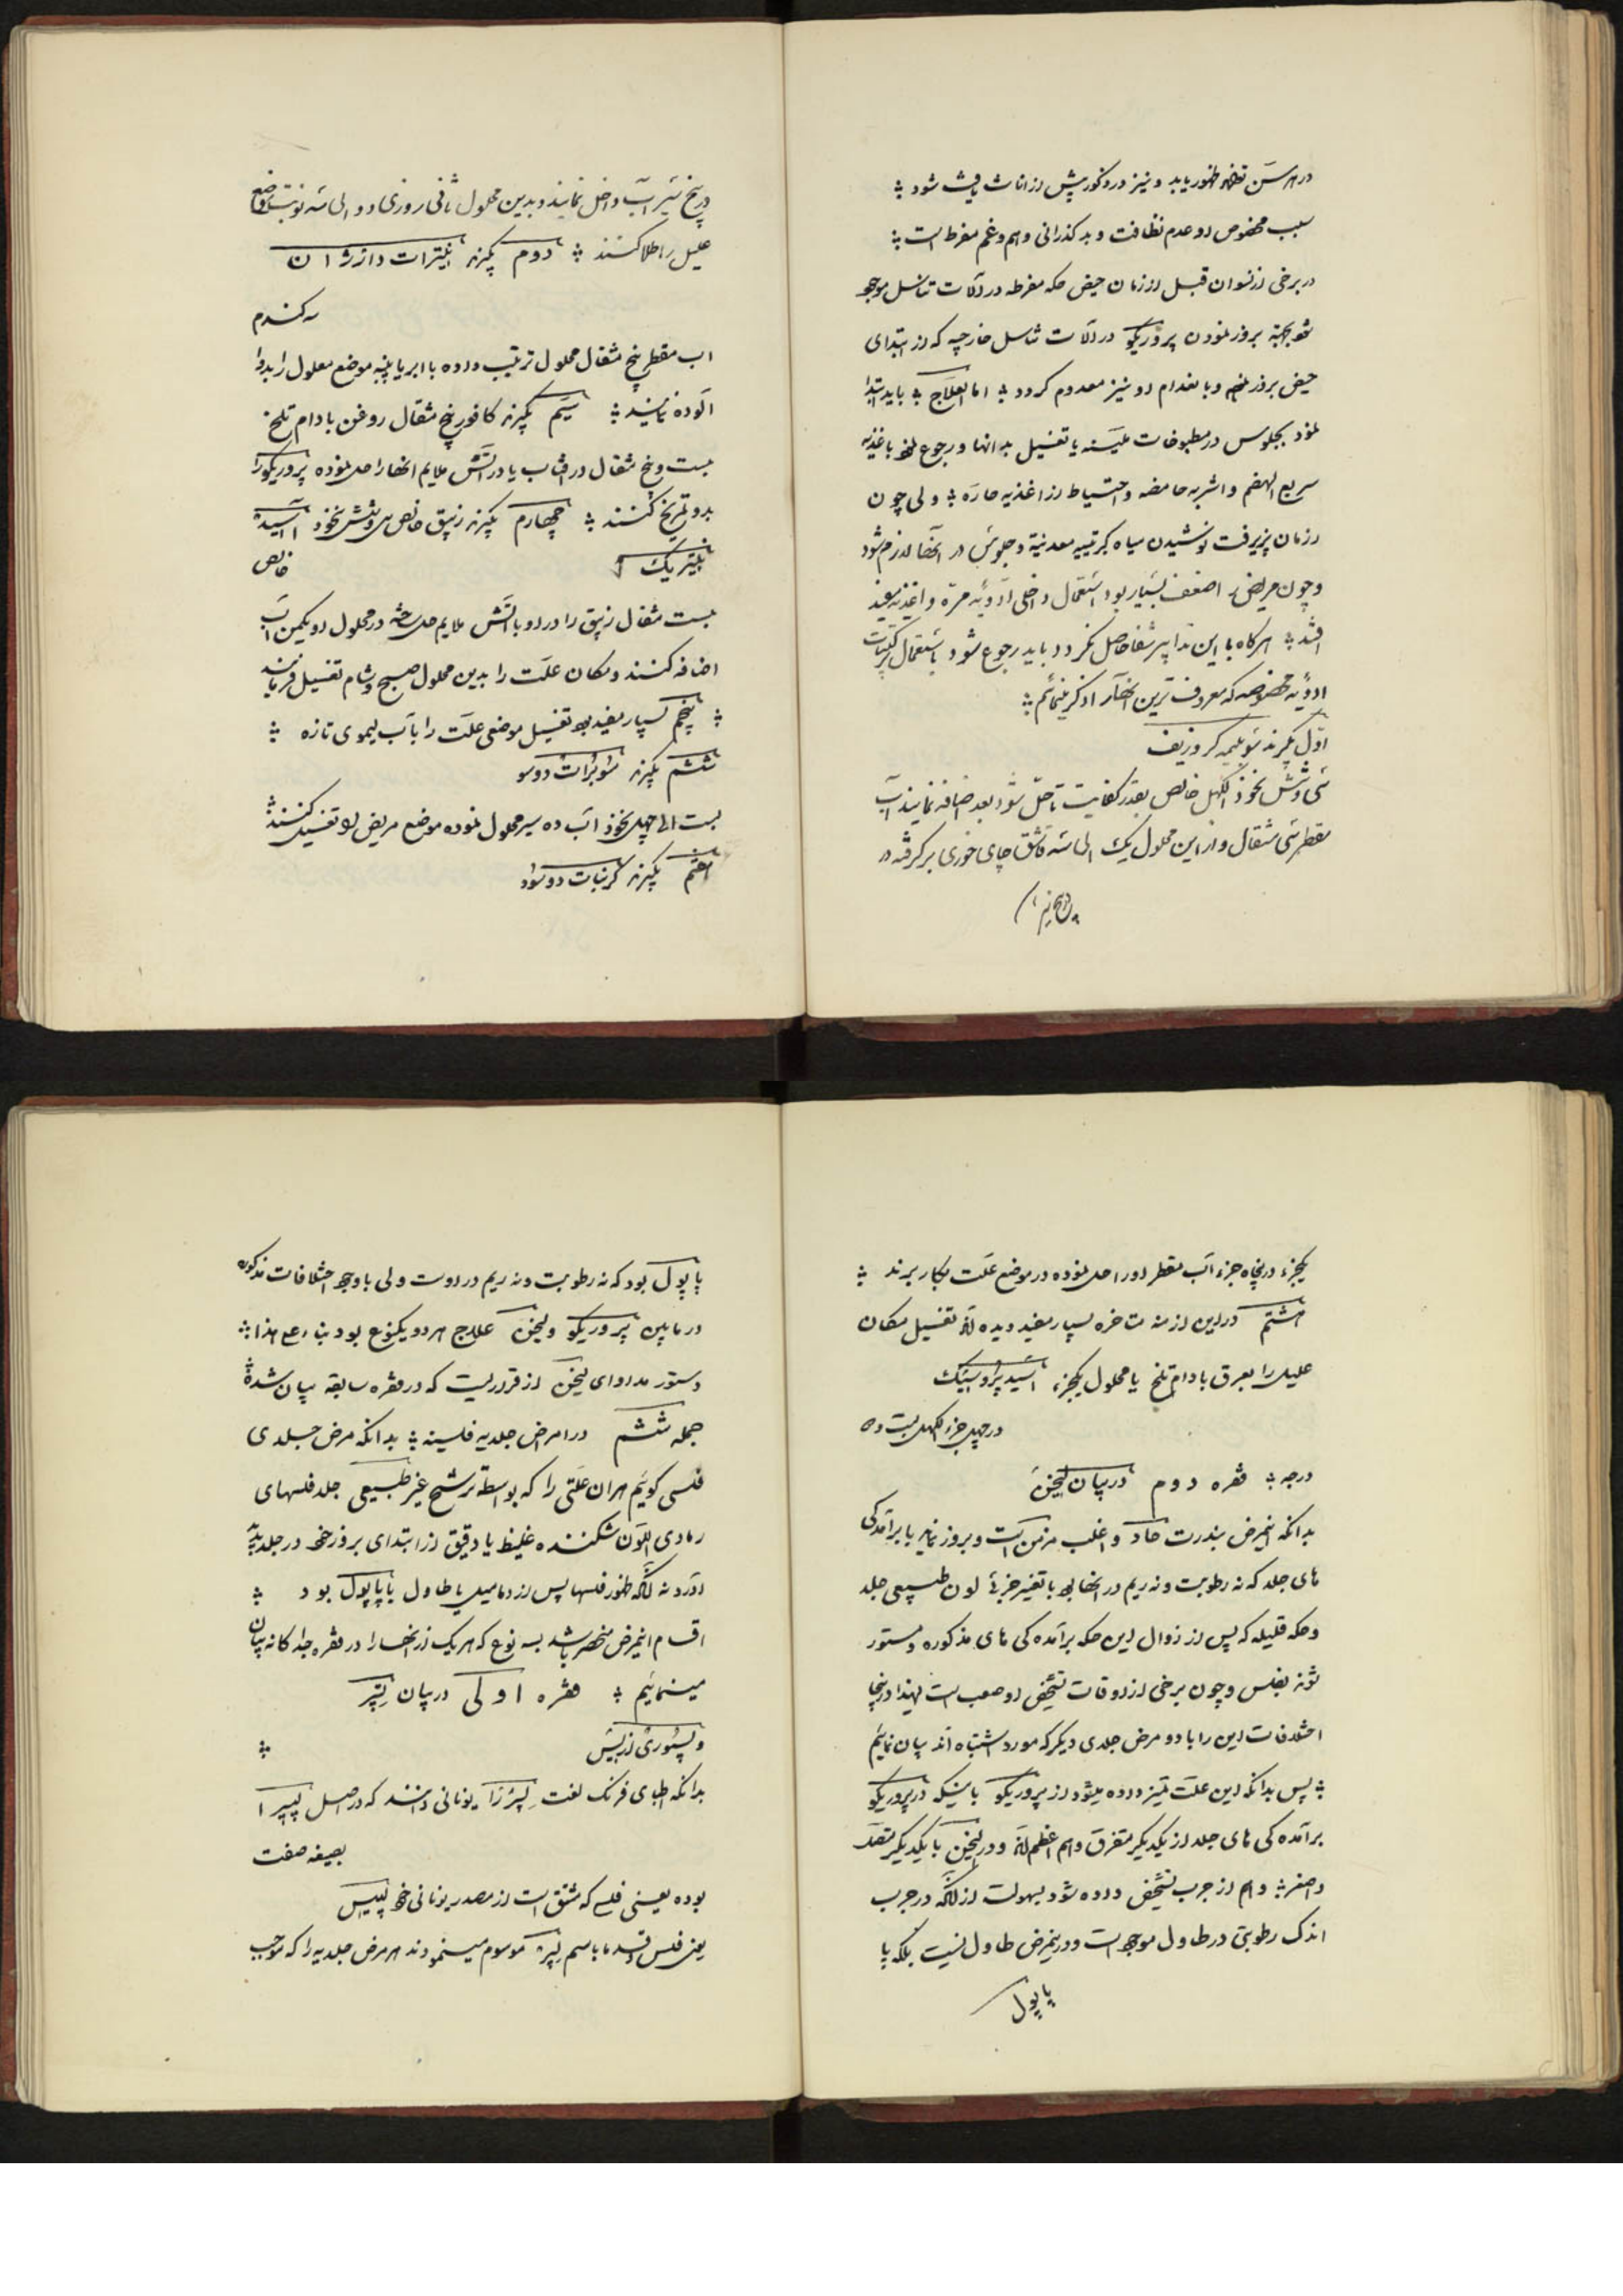 در هر سن تواند ظهور یابد و نیز در ذکور بیش از اناث یافت شود
سبب مخصوص او عدم نظافت و بد کذرانی و هم و غم مفرط است
در برخی از نسوان قبل از زمان حیض حکه مفرطه در آلات تناسل موجود
شود بجهة بروز نمودن پروریکو در آلات تناسل خارجیه که از ابتدای
حیض بروز نموده و با بعد او نیز معدوم کردد اما العلاج باید ابتدا
نمود بجلوس در مطبوخات ملینه یا تغسیل بدانها و رجوع نمود باغذیه
سریع الهضم و اشربه حامضه و احتیاط از اغذیه حاره ولی چون
زمان پذیرفت نوشیدن میاه کبریتیه معدنیة و جلوس در آنها لازم شود
و چون مریض را ضعف بسیار بود استعمال داخلی ادویه مره و اغذیه مفید
افتد هرکاه با این تدابیر شفا حاصل نکردد باید رجوع شود باستعمال مرکبات
ادویه مخصوصه که معروف ترین آنها را ذکر مینمائیم
اول بکیرند سوبلیمه کروزیف
سی و شش نخود الکهل خالص بقدر کفایت تا حل شود بعد اضافه نمایند آب
مقطر سی مثقال و از این محلول یک الی سه قاشق چای خوری برکرفته در
در پنج سیر آب داخل نمایند و بدین محلول ثانی روزی دو الی سه نوبت مواضع
علیل را طلا کنند دوم بکیرند نیترات دارژان
سه کندم
آب مقطر پنج مثقال محلول ترتیب داده با ابر یا پنبه موضع معلول را بدوا
آلوده نمایند سیم بکیرند کافور پنج مثقال روغن بادام تلخ
بیست و پنج مثقال در آفتاب یا در آتش ملایم آنها را حل نموده پروریکو را
بدو تمریخ کنند چهارم بکیرند زیبق خالص سی و شش نخود آسید
نیتریک خالص
بیست مثقال زیبق را در او با آتش ملایم حل ساخته در محلول او یکمن آب
اضافه کنند و مکان علت را بدین محلول صبح و شام تغسیل فرمایند
پنجم بسیار مفید بود تغسیل موضعی علت را با آب لیموی تازه
ششم بکیرند سوبرات دوسو
بیست الی چهل نخود آب ده سیر محلول نموده موضع مریض را تغسیل کنند
هفتم بکیرند کربنات دوسود
یکجزء در پنجاه جزء آب مقطر او را حل نموده در موضع علت بکار برند
هشتم در این ازمنه متاخره بسیار مفید دیده اند تغسیل مکان
علیل را بعرق بادام تلخ یا محلول یکجزء آسید پروسیک
در چهل جزء الکهل بیست و ده
درجه فقره دوم در بیان لیخن
بدانکه اینمرض بندرت حاد و اغلب مزمن است و بروز نماید با برآمدکی
های جلد که نه رطوبت و نه ریم در آنها بود با تغیر جزئی لون طبیعی جلد
و حکه قلیله که پس از زوال این حکه برآمده کی های مذکوره مستور
شوند بفلس و چون برخی از اوقات تشخیص او صعب است لهذا در اینجا
اختلافات این را با دو مرض جلدی دیکر که مورد اشتباه اند بیان نمائیم
پس بدانکه این علت تمیز داده میشود از پروریکو باینکه در پروریکو
برآمده کی های جلد از یکدیکر متفرق و هم اعظم اند و در لیخن با یکدیکر متصل
و اصغر و هم از جرب تشخیص داده شود بسهولت از آنکه در جرب
اندک رطوبتی در طاول موجود است و در اینمرض طاول نیست بلکه پا
پاپول
پاپول بود که نه رطوبت و نه ریم در اوست ولی با وجود اختلافات مذکوره
در ما بین پروریکو و لیخن علاج هر دو یکنوع بود بناء علی هذا
دستور مداوای لیخن از قراریست که در فقره سابقه بیان شده
جمله ششم در امراض جلدیه فلسیه بدانکه مرض جلدی
فلسی کوئیم هر آن علتی را که بواسطه ترشح غیر طبیعی جلد فلسهای
رمادی اللون شکننده غلیظ یا دقیق از ابتدای بروز خود در جلد پدید
آورد نه آنکه ظهور فلسها پس از دمامیل یا طاول یا پاپول بود
اقسام اینمرض منحصر باشد بسه نوع که هریک از آنها را در فقره جداکانه بیان
مینمائیم فقره اولی در بیان لپر
و پسوریازیس
بدانکه اطبای فرنک لغت لپر را یونانی دانند که در اصل لپیرا
بصیغه صفت
بوده یعنی فلسی که مشتق است از مصدر یونانی خود لپیس
یعنی فلس و قدما باسم لپر موسوم مینمودند هر مرض جلدیه را که موجب